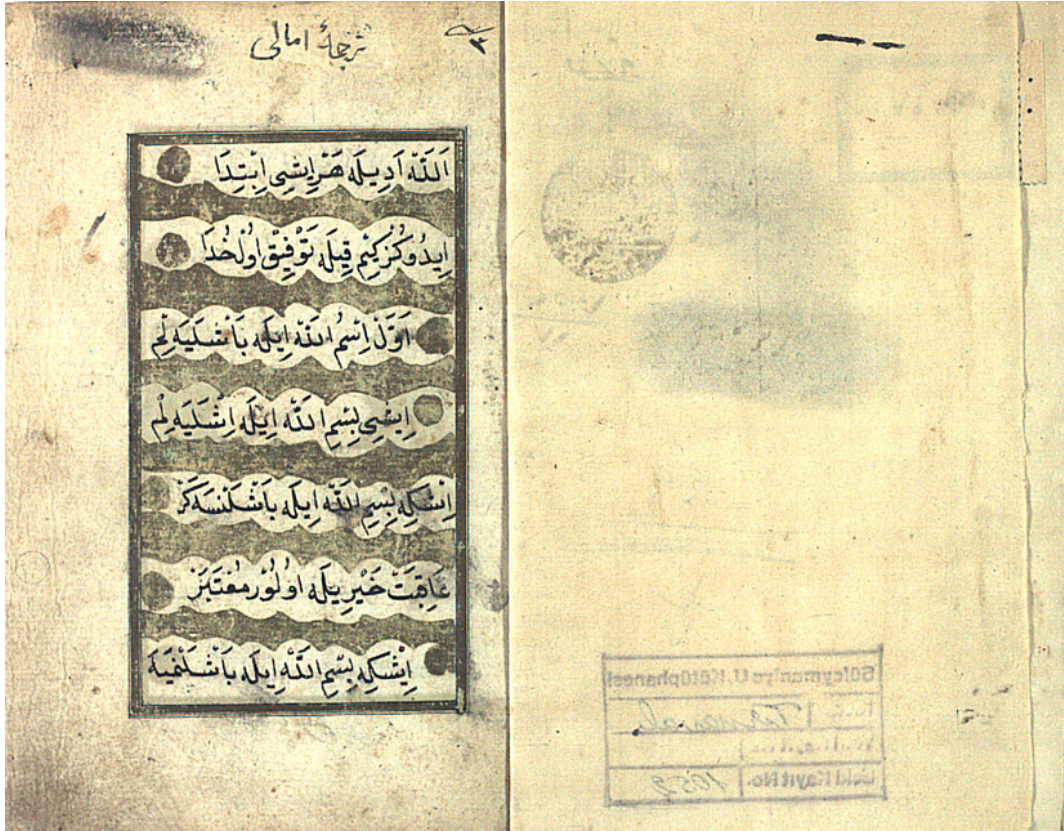 ترجمهٔ امالی
٣
اَللّٰه اَدِیلَه هَرْاِیشِی اِبْتِدَا
اِیدُوكُزكِیْم قِیلَه تَوْفِیقْ اوُلْخُدَا
اَوَّلْ اِسْمُ اللّٰه اِیلَه بَاشْلَیَه لِمْ
اِیشِی بِسْمِ اللّٰه اِیلَه اِشْلَیَه لِمْ
اِیشْكِه بِسْمِ اللّٰه اِیلَه بَاشْلَنْسَه كَرْ
عَاقِبَتْ خَیْرِیلَه اوُلُورْ مُعْتَبَرْ
اِیشْكِه بِسْمِ اللّٰه اِیلَه بَاشْلَنْمَیَه
Süleymaniye U. Kütüphanesi
Eski Kayıt No. 1052